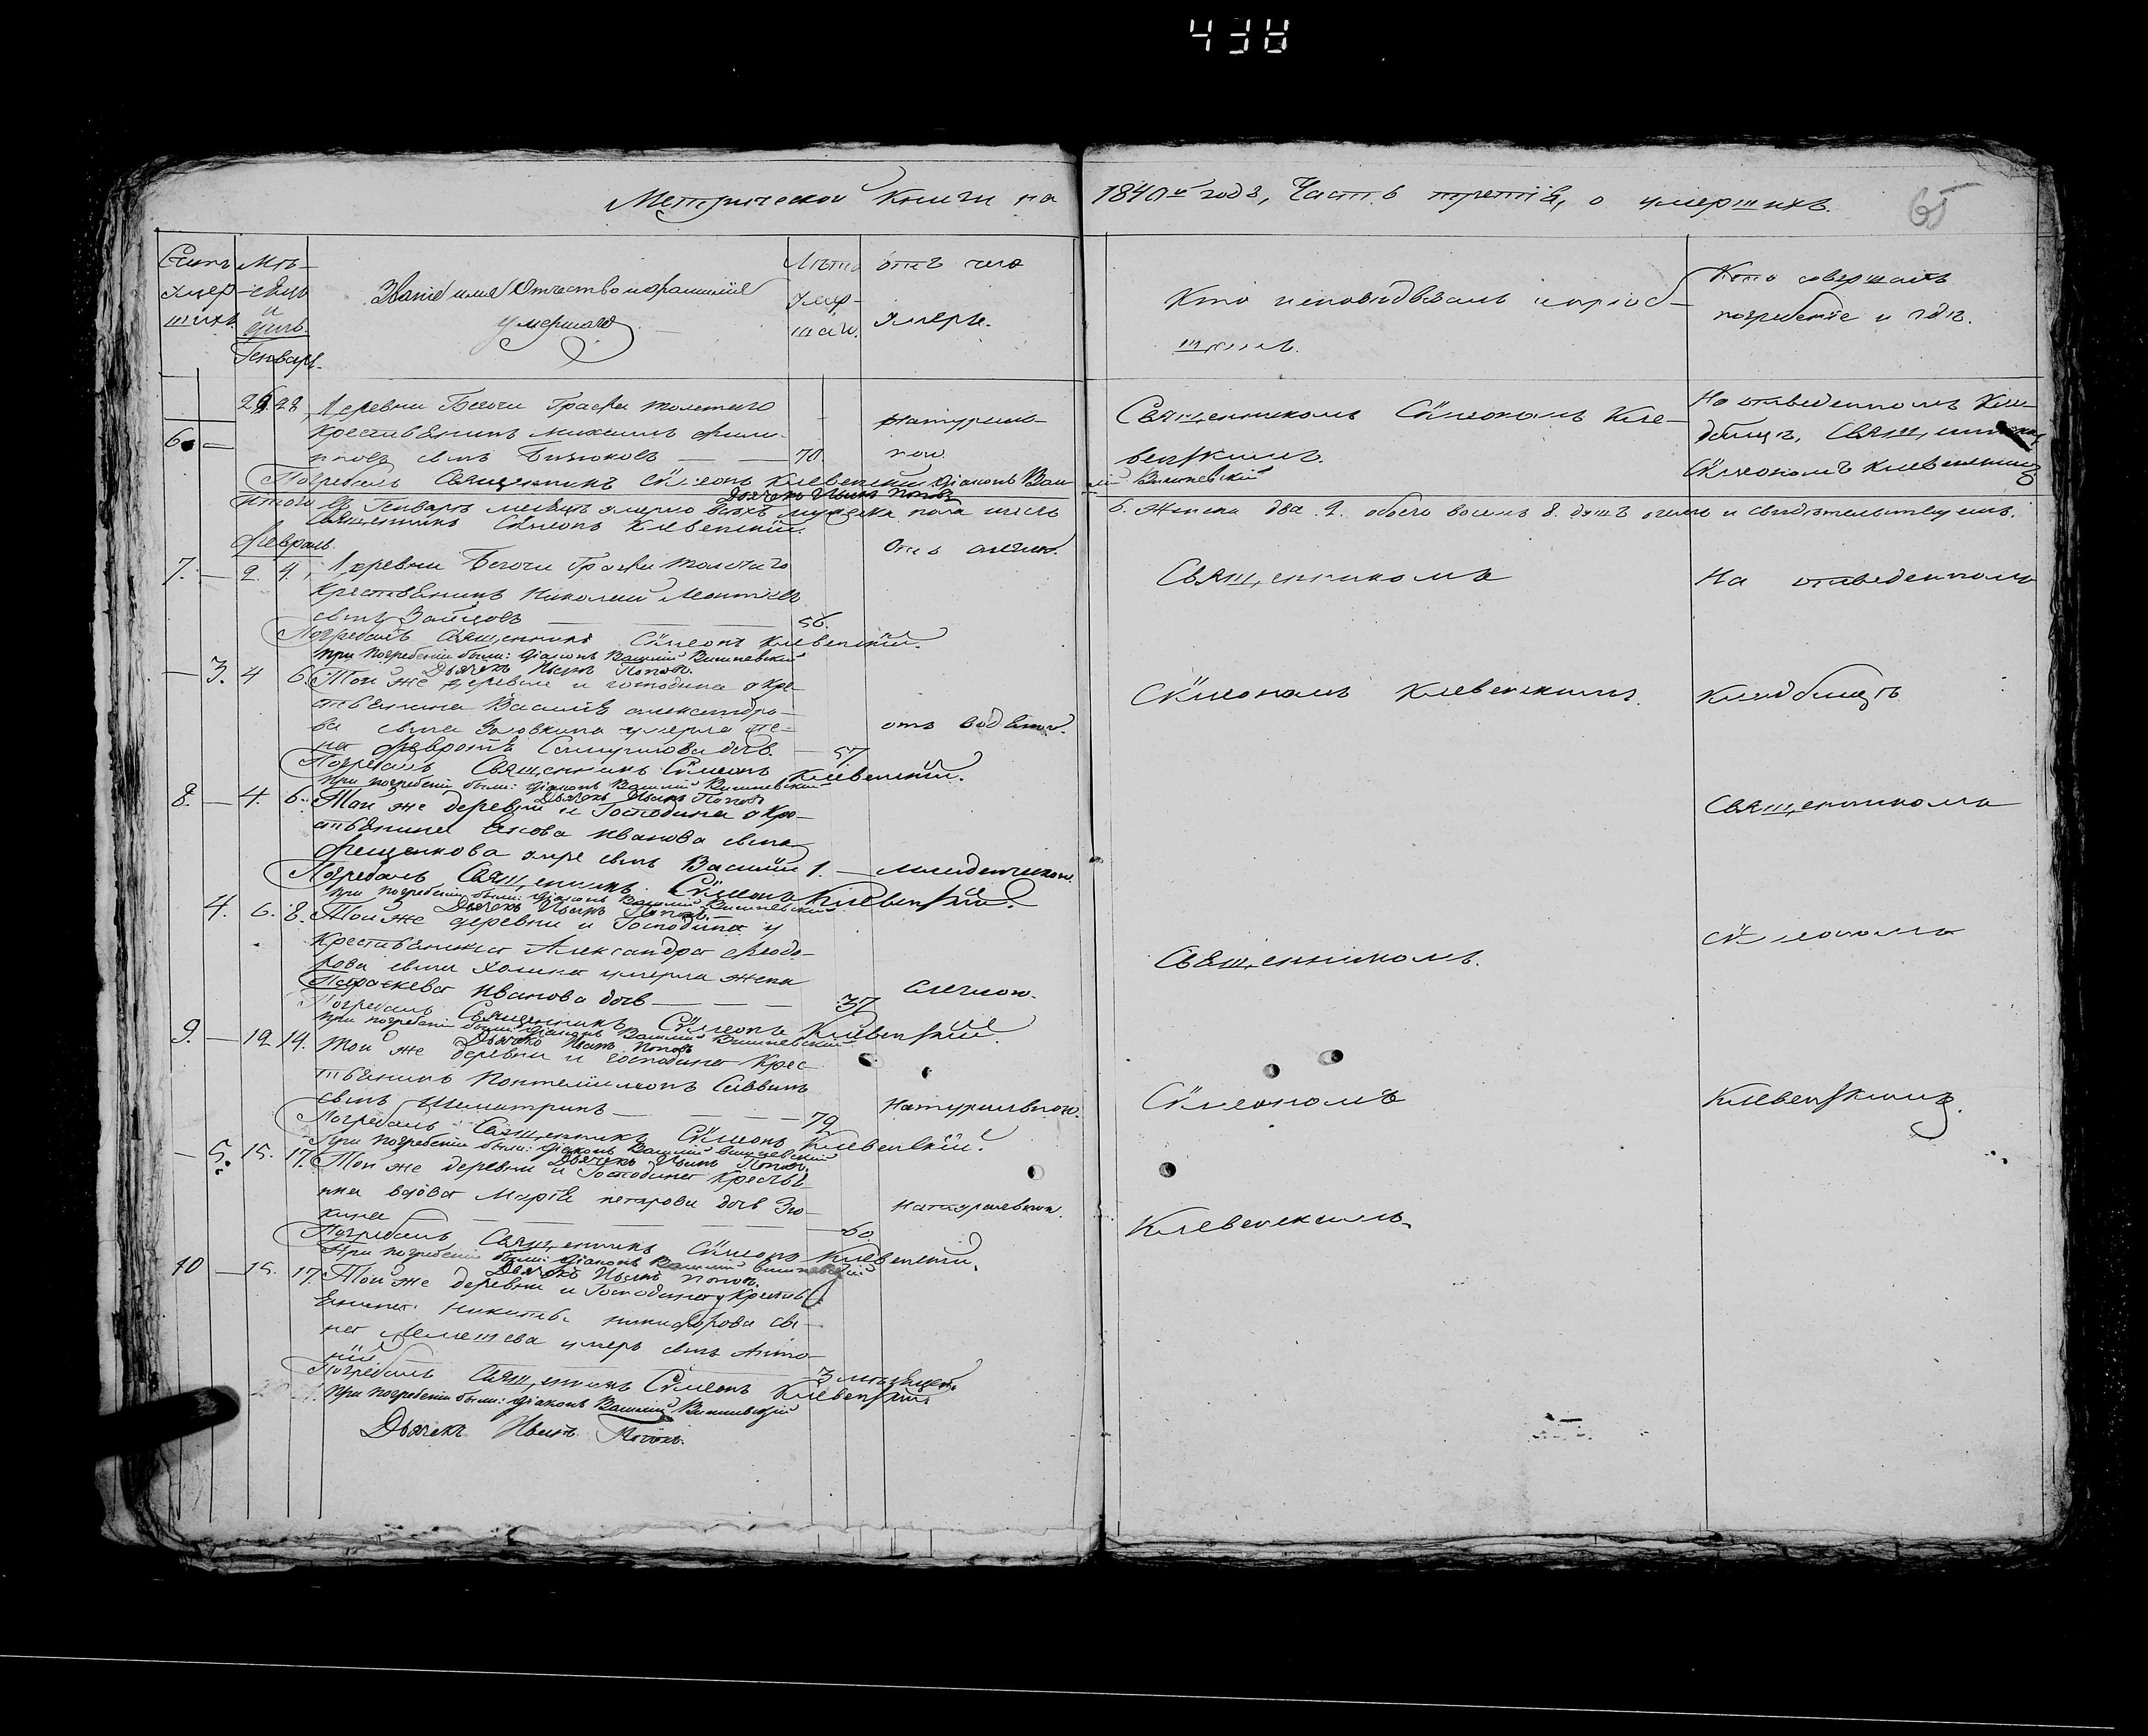 438
Метрической Книги на 1840й годъ, Часть третія, о умершихъ.
65
Счетъ умершихъ.
Мѣсяцъ и день.
Званіе имя Отчество и фамилія умершаго
Лѣта умершаго.
отъ чего умеръ.
Кто исповѣдывалъ и пріобщалъ.
Кто совершалъ погребеніе и гдѣ.
Генварь.
6 — 26 28
Деревни Графа Толстаго
крестьянинъ михаилъ филиповъ сынъ — 70.
натуральною
Священникомъ Сѵмеономъ Клевенскимъ.
На отведенномъ Кладбищѣ, Священникомъ
Сѵмеономъ Клевенскимъ
Погребалъ Священникъ Сѵмеонъ Клевенскій діаконъ Василій Вишневскій
Дьячекъ Иванъ Поповъ
Итого въ Генварѣ месяцѣ умерло всѣхъ мужеска пола шесть 6. женска два 2. обоего восемь 8. душъ и свидѣтельствуемъ.
Священникъ Сѵмеонъ Клевенскій.
Февраль.
7. — 2. 4.
Деревни Графа Толстаго
Крестьянинъ Николай Леонтіевъ
сынъ Зайцовъ — 56.
Священникомъ
На отведенномъ
Погребалъ Священникъ Сѵмеонъ Клевенскій.
При погребеніи были: діаконъ Василій Вишневскій
Дьячекъ Иванъ Поповъ.
— 3. 4 6.
Той же деревни и господина у крестьянина Василія александрова сына умерла жена Февронія дочь. — 57.
отъ водяной.
Сѵмеономъ Клевенскимъ.
Кладбищѣ
Погребалъ Священникъ Сѵмеонъ Клевенскій.
При погребеніи были: діаконъ Василій Вишневскій
Дьячекъ Иванъ Поповъ
8. — 4. 6.
Той же деревни и Господина у Крестьянина Іакова Иванова сына
умре сынъ Василій 1. — младенческою.
Священникомъ
Погребалъ Священникъ Сѵмеонъ Клевенскій.
При погребеніи были: діаконъ Василій Вишневскій
Дьячекъ Иванъ Поповъ.
4. 6. 8.
Той же деревни и Господина у
Крестьянина Александра Феодорова сына умерла жена
Параскева Иванова дочь — 37.
Священникомъ.
Сѵмеономъ
Погребалъ Священникъ Сѵмеонъ Клевенскій.
При погребеніи были: діаконъ Василій Вишневскій
Дьячекъ Иванъ Поповъ
9. — 12 14.
Той же деревни и господина Крестьянинъ Саввинъ
сынъ — 72
Натуральною.
Сѵмеономъ
Клевенскимъ.
Погребалъ Священникъ Сѵмеонъ Клевенскій.
При погребеніи были: діаконъ Василій Вишневскій
Дьячекъ Иванъ Поповъ.
— 5. 15. 17.
Той же деревни и Господина
вдова Марія петрова дочь — 60.
Натуральною.
Клевенскимъ.
Погребалъ Священникъ Сѵмеонъ Клевенскій.
При погребеніи были: діаконъ Василій Вишневскій
Дьячекъ Иванъ Поповъ.
10 — 15. 17.
Той же деревни и Господина у Крестьянина Никиты никифорова сына умеръ сынъ
3 мѣсяцовъ
Погребалъ Священникъ Сѵмеонъ Клевенскій.
При погребеніи были: діаконъ Василій Вишневскій
Дьячекъ Иванъ Поповъ.